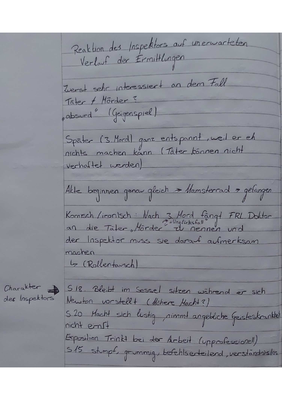 Reaktion des Inspektors auf unerwarteten
Verlauf der Ermittlungen
Zuerst sehr interessiert an dem Fall
Täter ≠ Mörder?
„absurd" (Geigenspiel)
Später (3. Mord) ganz entspannt, weil er eh
nichts machen kann (Täter können nicht
verhaftet werden)
Akte beginnen genau gleich → Hamsterrad → gefangen
Komisch / ironisch: Nach 3. Mord fängt FRL Doktor
an die Täter „Mörder" zu nennen und
der Inspektor muss sie darauf aufmerksam
machen
↳ (Rollentausch)
Charakter
des Inspektors
S.18 Bleibt im Sessel sitzen während er sich
Newton vorstellt (
S.20 Macht sich lustig, nimmt angebliche Geisteskrankheit
nicht ernst
Exposition Trinkt bei der Arbeit (unprofessionell)
S.15 stumpf, grummig, befehlserteilend,